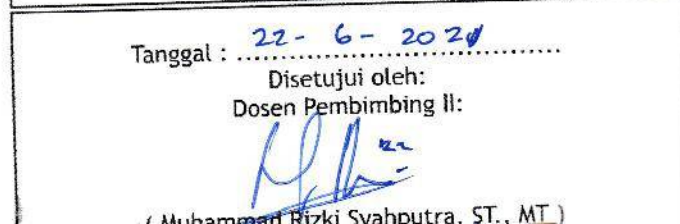 Tanggal : 22 - 6 - 2021
Disetujui oleh:
Dosen Pembimbing II:
( Muhammad Rizki Syahputra, ST., MT )